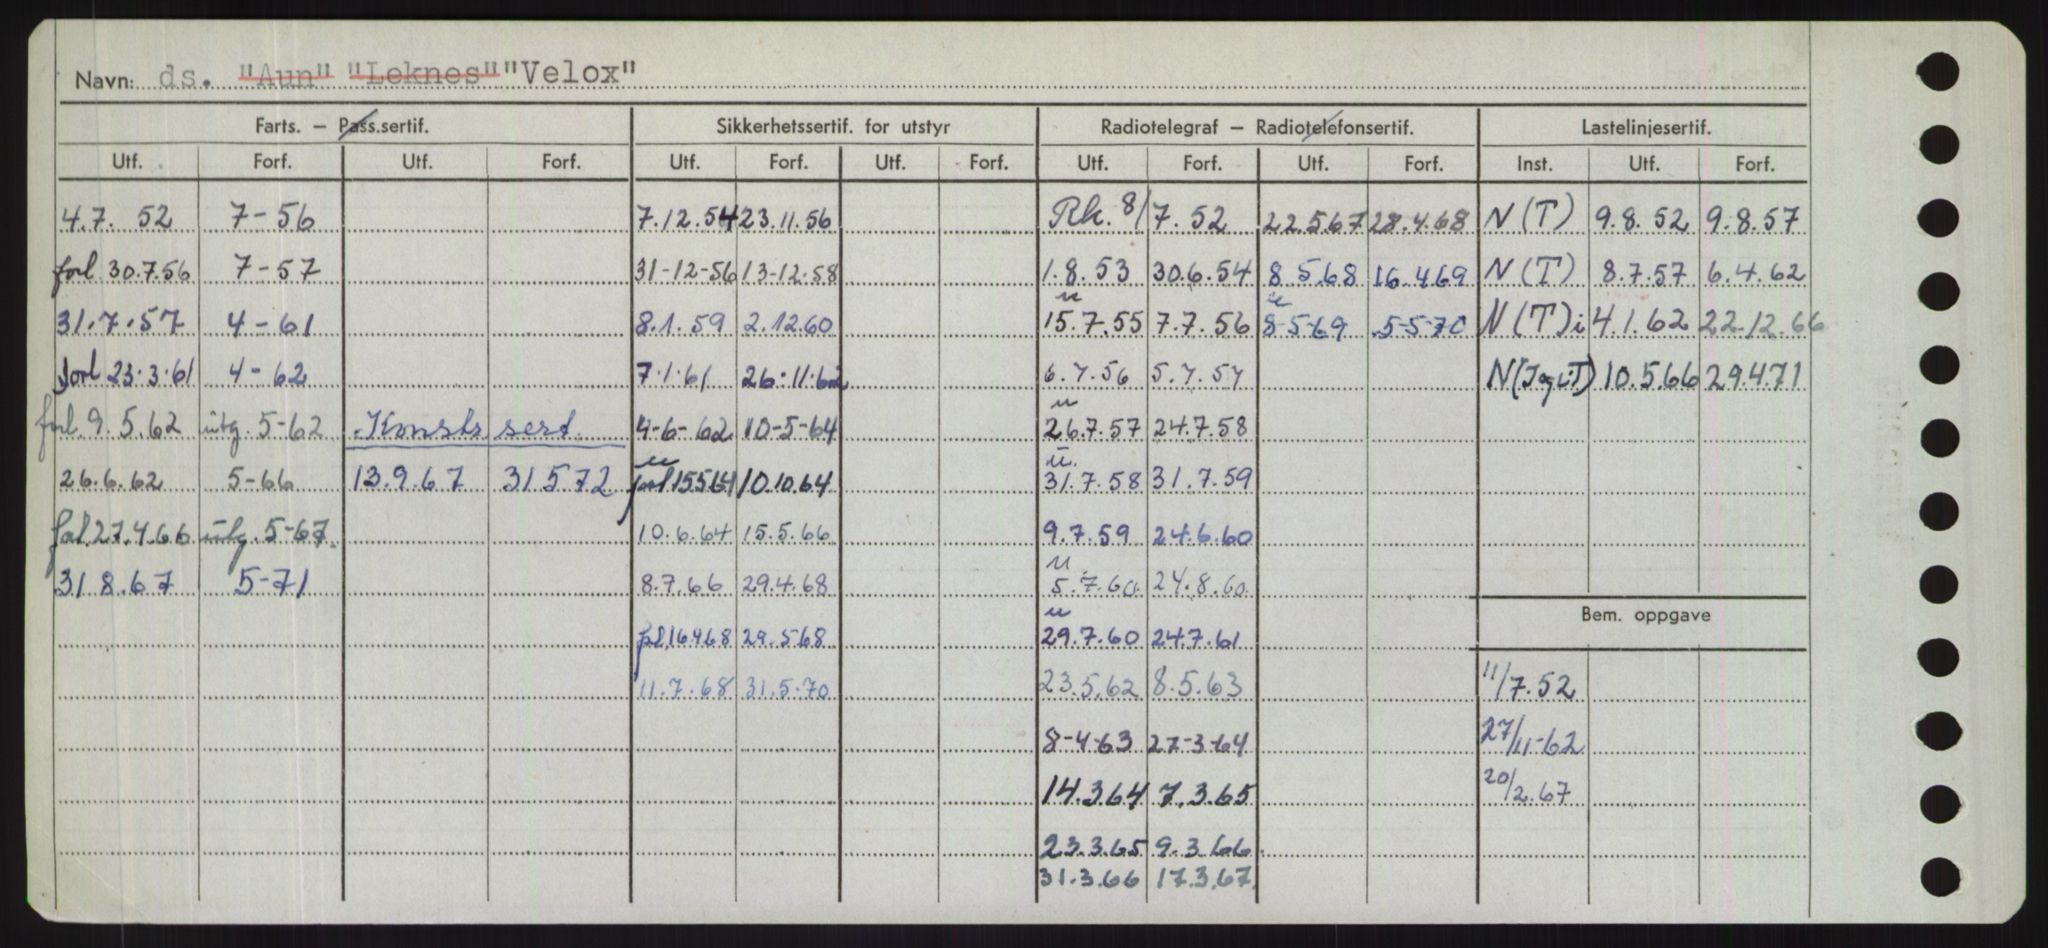 Navn: ds. "Aun" "Leknes" "Velox"
Farts. – Pass.sertif. Sikkerhetssertif. for utstyr Radiotelegraf – Radiotelefonsertif. Lastelinjesertif.
Utf. Forf. Utf. Forf. Utf. Forf. Utf. Forf. Utf. Forf. Utf. Forf. Inst. Utf. Forf.
4.7. 52 7-56 7.12.54 23.11.56 Rk. 8/7.52 22.5.67 28.4.68 N(T) 9.8.52 9.8.57
forl 30.7.56 7-57 31-12-56 13-12-58 1.8.53 30.6.54 8.5.68 16.4.69 N(T) 8.7.57 6.4.62
u u
31.7.57 4-61 8.1.59 2.12.60 15.7.55 7.7.56 8-5-69 5-5-70 N(T)i 4.1.62 22.12.66
forl 23.3.61 4-62 7.1.61 26.11.62 6.7.56 5.7.57 N(T og iT) 10.5.66 29.4.71
u
forl. 9.5.62 utg. 5-62 Konstr sert. 4-6-62 10-5-64 26.7.57 24.7.58
u u
26.6.62 5-66 13.9.67 31.5.72 forl 15.5.64 10.10.64 31.7.58 31.7.59
forl. 27.4.66 utg. 5-67 10.6.64 15.5.66 9.7.59 24.6.60
u
31.8.67 5-71 8.7.66 29.4.68 5.7.60 24.8.60
Bem. oppgave
u
fol. 16.4.68 29.5.68 29.7.60 24.7.61
11.7.68 31.5.70 23.5.62 8.5.63 11/7.52
8-4-63 27-3-64 27/11-62
14.3.64 7.3.65 20/2.67
23.3.65 9.3.66
31.3.66 17.3.67